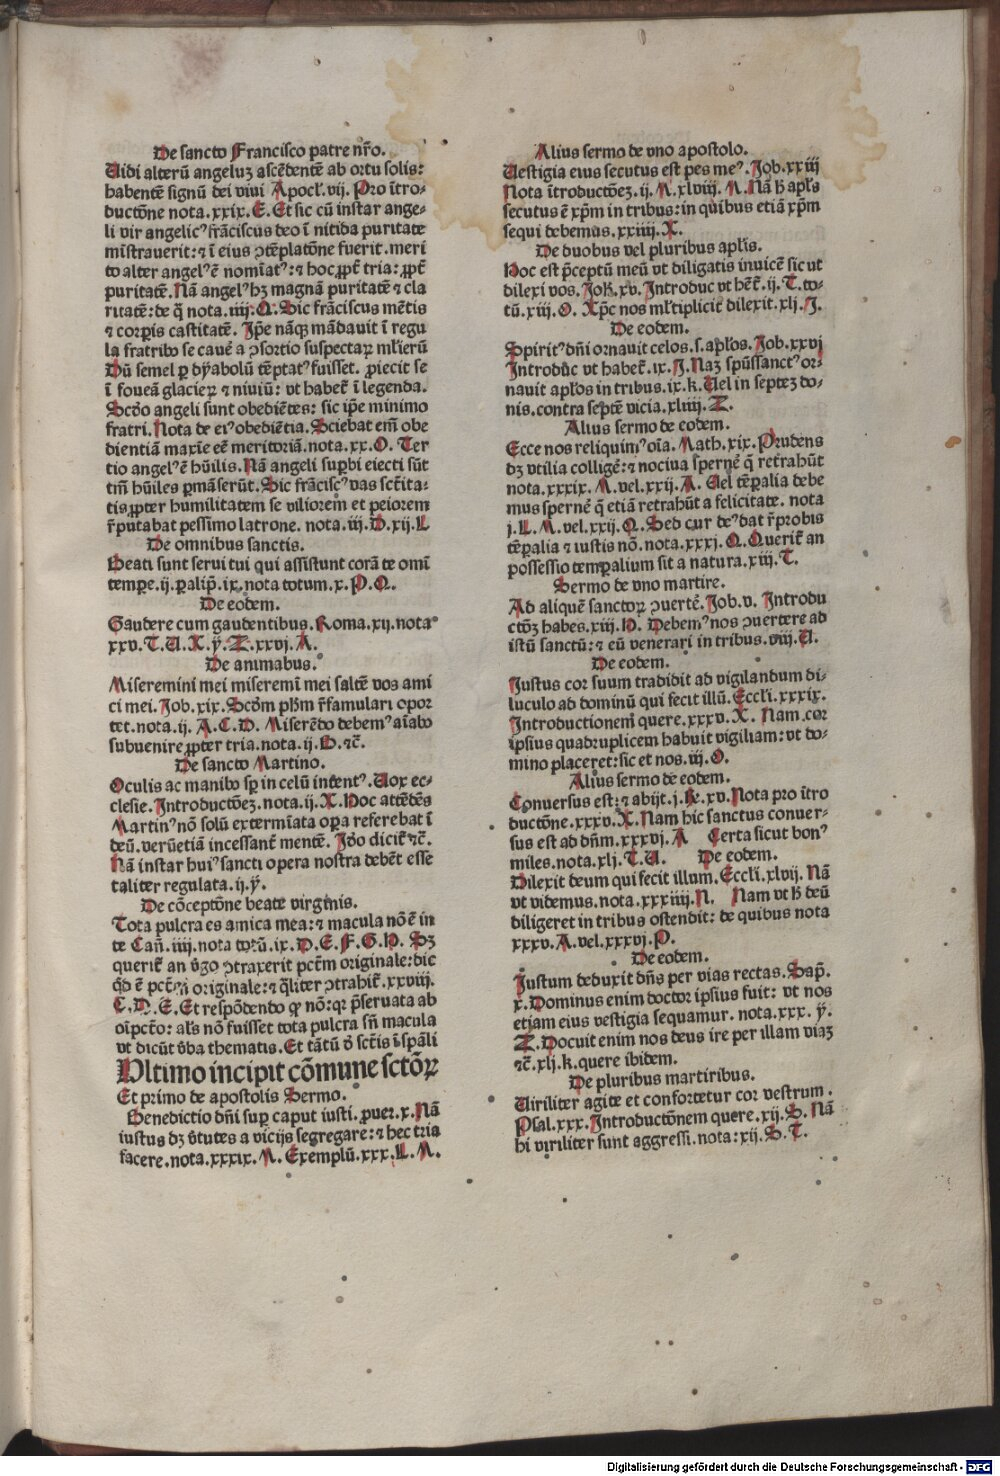 De sancto Francisco patre nr̃o.
Uidi alterũ angeluʒ ascẽdentẽ ab ortu solis:
habentẽ signũ dei viui Apocľ.vij. Pro ĩtro-
ductõne nota.xxix.E. Et sic cũ instar ange-
li vir angelicꝰ frãciscus deo ĩ nitida puritate
mĩstrauerit: ⁊ ĩ eius ꝯtẽplatõne fuerit. meri
to alter angelꝰ ẽ nomĩatꝰ: ⁊ hoc ꝓpť tria: ꝓpť
puritatẽ. Nã angelꝰ hʒ magnã puritatẽ ⁊ cla
ritatẽ: de q̃ nota.iiij.Q. Sic frãciscus mẽtis
⁊ corꝑis castitatẽ. Ip̃e nãqʒ mãdauit ĩ regu
la fratribꝰ se cauẽ a ꝯsortio suspectaꝝ ml̃ierũ
Dũ semel ꝑ dyabolũ tẽptatꝰ fuisset. ꝓiecit se
ĩ foueã glacieꝝ ⁊ niuiũ: vt habeť ĩ legenda.
Scðo angeli sunt obediẽtes: sic ip̃e minimo
fratri. Nota de eiꝰ obediẽtia. Sciebat em̃ obe
dientiã maxĩe eẽ meritoriã. nota.xx.O. Ter
tio angelꝰ ẽ hũilis. Nã angeli suꝑbi eiecti sũt
tm̃ hũiles ꝑmãserũt. Sic frãciscꝰ vas sct̃ita-
tis ꝓpter humilitatem se viliorem et peiorem
r̃putabat pessimo latrone. nota.iij.D.xij.L
De omnibus sanctis.
Beati sunt serui tui qui assistunt corã te omĩ
tempe.ij.paliꝑ.ix.nota totum.x.P.Q.
De eodem.
Gaudere cum gaudentibus. Roma.xij.nota
xxv.T.U.X.ẏ.Z.xxvj.A.
De animabus.
Miseremini mei miseremĩ mei saltẽ vos ami
ci mei. Job.xix. Scðm pħm r̃famulari opor
tet.nota.ij.A.C.D. Miserẽdo debemꝰ aĩabꝰ
subuenire ꝓpter tria.nota.ij.B.⁊c̃.
De sancto Martino.
Oculis ac manibꝰ sꝑ in celũ intentꝰ. Uox ec-
clesie. Introductõeʒ.nota.ij.X. Hoc attẽdẽs
Martinꝰ nõ solũ extermĩata oꝑa referebat ĩ
deũ.verũetiã incessanť mentẽ. Jðo diciť ⁊c̃.
Nã instar huiꝰ sancti opera nostra debẽt esse
taliter regulata.ij.ẏ.
De cõceptõne beate virginis.
Tota pulcra es amica mea: ⁊ macula nõ ẽ in
te Cañ.iiij.nota totũ.ix.D.E.F.G.H. Sʒ
querit̃ an v̾go ꝯtraxerit pct̃m originale: dic
qð ẽ pct̃m̃ originale: ⁊ q̃liter ꝯtrahiť.xxviij.
C.D.E. Et respõdendo ꝙ nõ: qꝛ p̃seruata ab
oĩpct̃o: al̃s nõ fuisset tota pulcra sñ macula
vt dicũt v̾ba thematis. Et tãtũ ð sct̃is ĩ sp̃ali
Ultimo incipit cõmune sctõꝝ
Et primo de apostolis Sermo.
Benedictio dñi suꝑ caput iusti.ꝓuer.x. Nã
iustus dʒ v̾tutes a vicijs segregare: ⁊ hec tria
facere.nota.xxxix.M. Exemplũ.xxx.L.M.
Alius sermo de vno apostolo.
Uestigia eius secutus est pes meꝰ. Job.xxiij
Nota ĩtroductõeʒ.ij.M.xlviij.M. Nã ħ apl̃s
secutus ẽ xp̃m in tribus: in quibus etiã xp̃m
sequi debemus.xxiiij.X.
De duobus vel pluribus apl̃is.
Hoc est p̃ceptũ meũ vt diligatis inuicẽ sicut
dilexi vos. Joħ.xv. Introduc vt heť.ij.T.to-
tũ.xiij.O. Xp̃c nos ml̃tipliciť dilexit.xlj.J.
De eodem.
Spiritꝰ dñi ornauit celos.s.apľos. Job.xxvj
Introduc̃ vt habeť.ix.J. Naʒ spũssanctꝰ or-
nauit apľos in tribus.ix.k. Uel in septeʒ do-
nis.contra septẽ vicia.xliiij.Z.
Alius sermo de eodem.
Ecce nos reliquimꝰ oĩa. Math.xix. Prudens
dʒ vtilia colligẽ: ⁊ nociua spernẽ q̃ retrahũt
nota.xxxix.M.vel.xxij.A. Uel tẽꝑalia debe
mus spernẽ q̃ etiã retrahũt a felicitate. nota
j.L.M.vel.xxij.Q. Sed cur deꝰ dat r̃probis
tẽꝑalia ⁊ iustis nõ.nota.xxxj.Q. Querit̃ an
possessio temꝑalium sit a natura.xiij.T.
Sermo de vno martire.
Ad aliquẽ sanctoꝝ ꝯuertẽ. Job.v. Introdu
ctõʒ habes.xiij.H. Debemꝰ nos ꝯuertere ad
istũ sanctũ: ⁊ eũ venerari in tribus.viij.U.
De eodem.
Justus cor suum tradidit ad vigilandum di-
luculo ad dominũ qui fecit illũ. Eccľi.xxxix.
Introductionem quere.xxxv.X. Nam cor
ipsius quadruplicem habuit vigiliam: vt do-
mino placeret: sic et nos.iij.O.
Alius sermo de eodem.
Conuersus est: ⁊ abijt.j.Re.xv. Nota pro ĩtro
ductõne.xxxv.X. Nam hic sanctus conuer-
sus est ad dñm.xxxvj.A Certa sicut bonꝰ
miles.nota.xlj.T.U. De eodem.
Dilexit deum qui fecit illum. Eccľi.xlvij. Nã
vt videmus.nota.xxxiiij.N. Nam vt ħ deũ
diligeret in tribus ostendit: de quibus nota
xxxv.A.vel.xxxvj.P.
De eodem.
Justum deduxit dñs per vias rectas. Sap̃.
x. Dominus enim doctor ipsius fuit: vt nos
etiam eius vestigia sequamur. nota.xxx.ẏ.
Z. Docuit enim nos deus ire per illam viaʒ
⁊c̃.xlj.k.quere ibidem.
De pluribus martiribus.
Uiriliter agite et confortetur cor vestrum.
Psal.xxx. Introductõnem quere.xij.S. Nã
hi viriliter sunt aggressi.nota:xij.S.T.
Digitalisierung gefördert durch die Deutsche Forschungsgemeinschaft - DFG